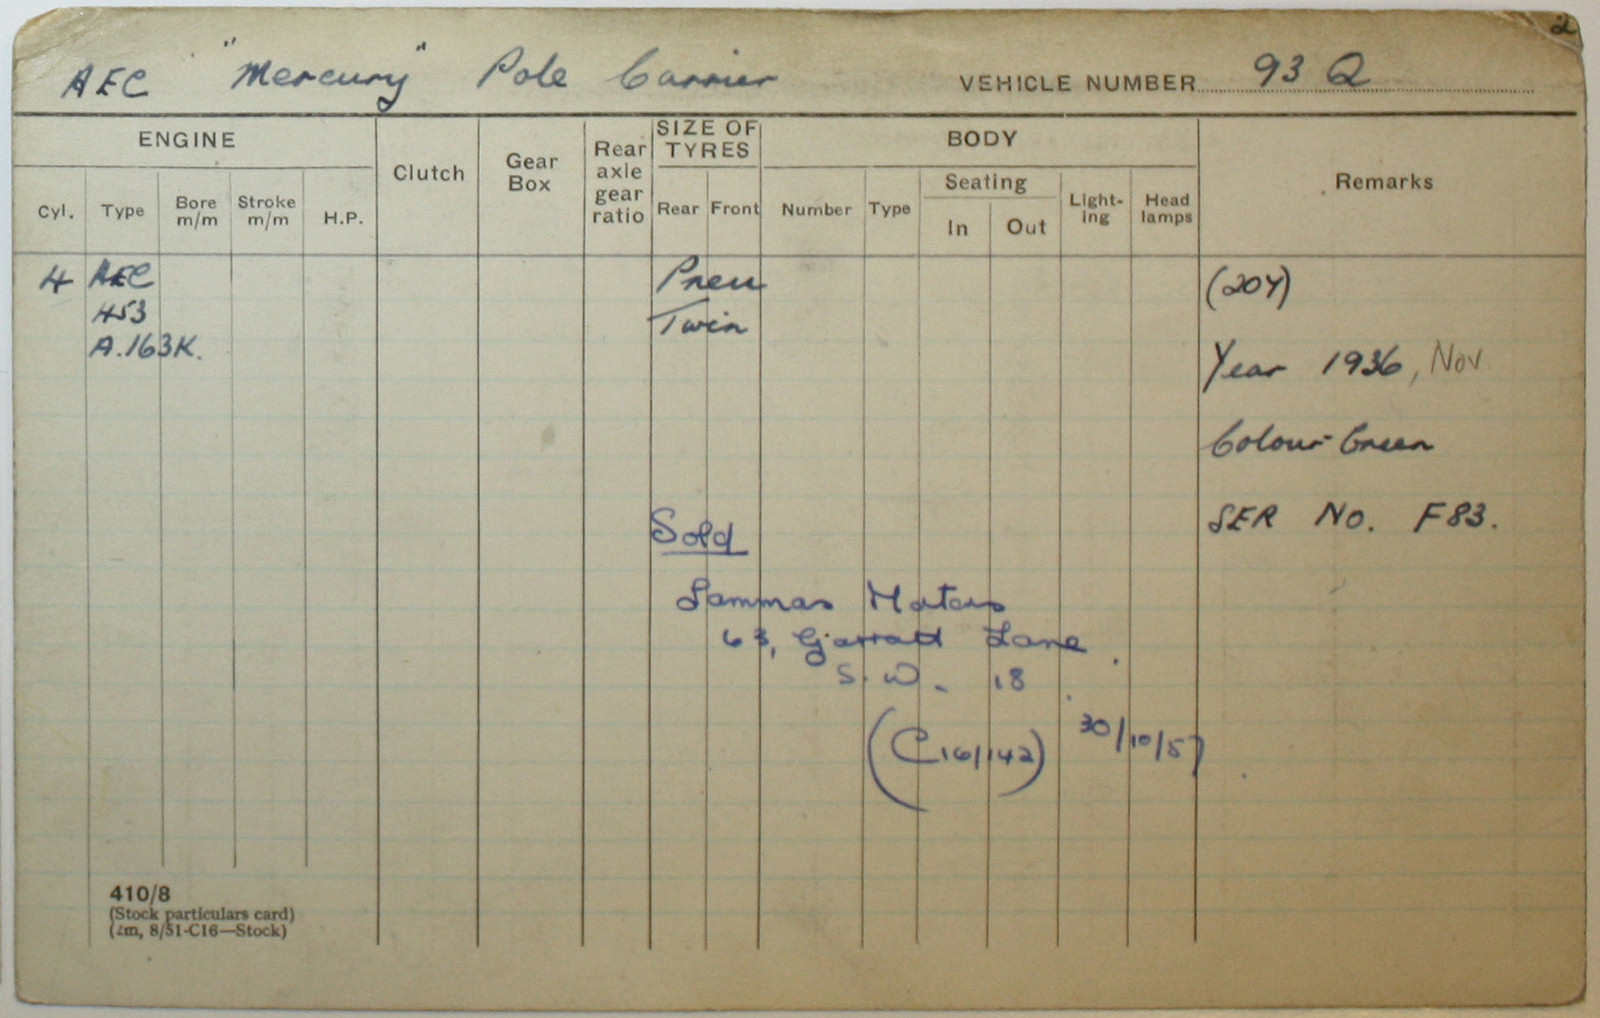 2
AEC "Mercury" Pole Carrier VEHICLE NUMBER 93 Q
ENGINE Clutch Gear Box Rear axle gear ratio SIZE OF TYRES BODY Remarks
Cyl. Type Bore m/m Stroke m/m H.P. Rear Front Number Type Seating In Out Light-ing Head lamps
4 AEC Pneu (204)
453 Twin
A.163K. Year 1936, Nov.
Colour Green
Sold SER No. F83.
Lammas Motors
63, Garratt Lane.
S.W. 18.
(C16/142) 30/10/57.
410/8
(Stock particulars card)
(2m, 8/51-C16—Stock)